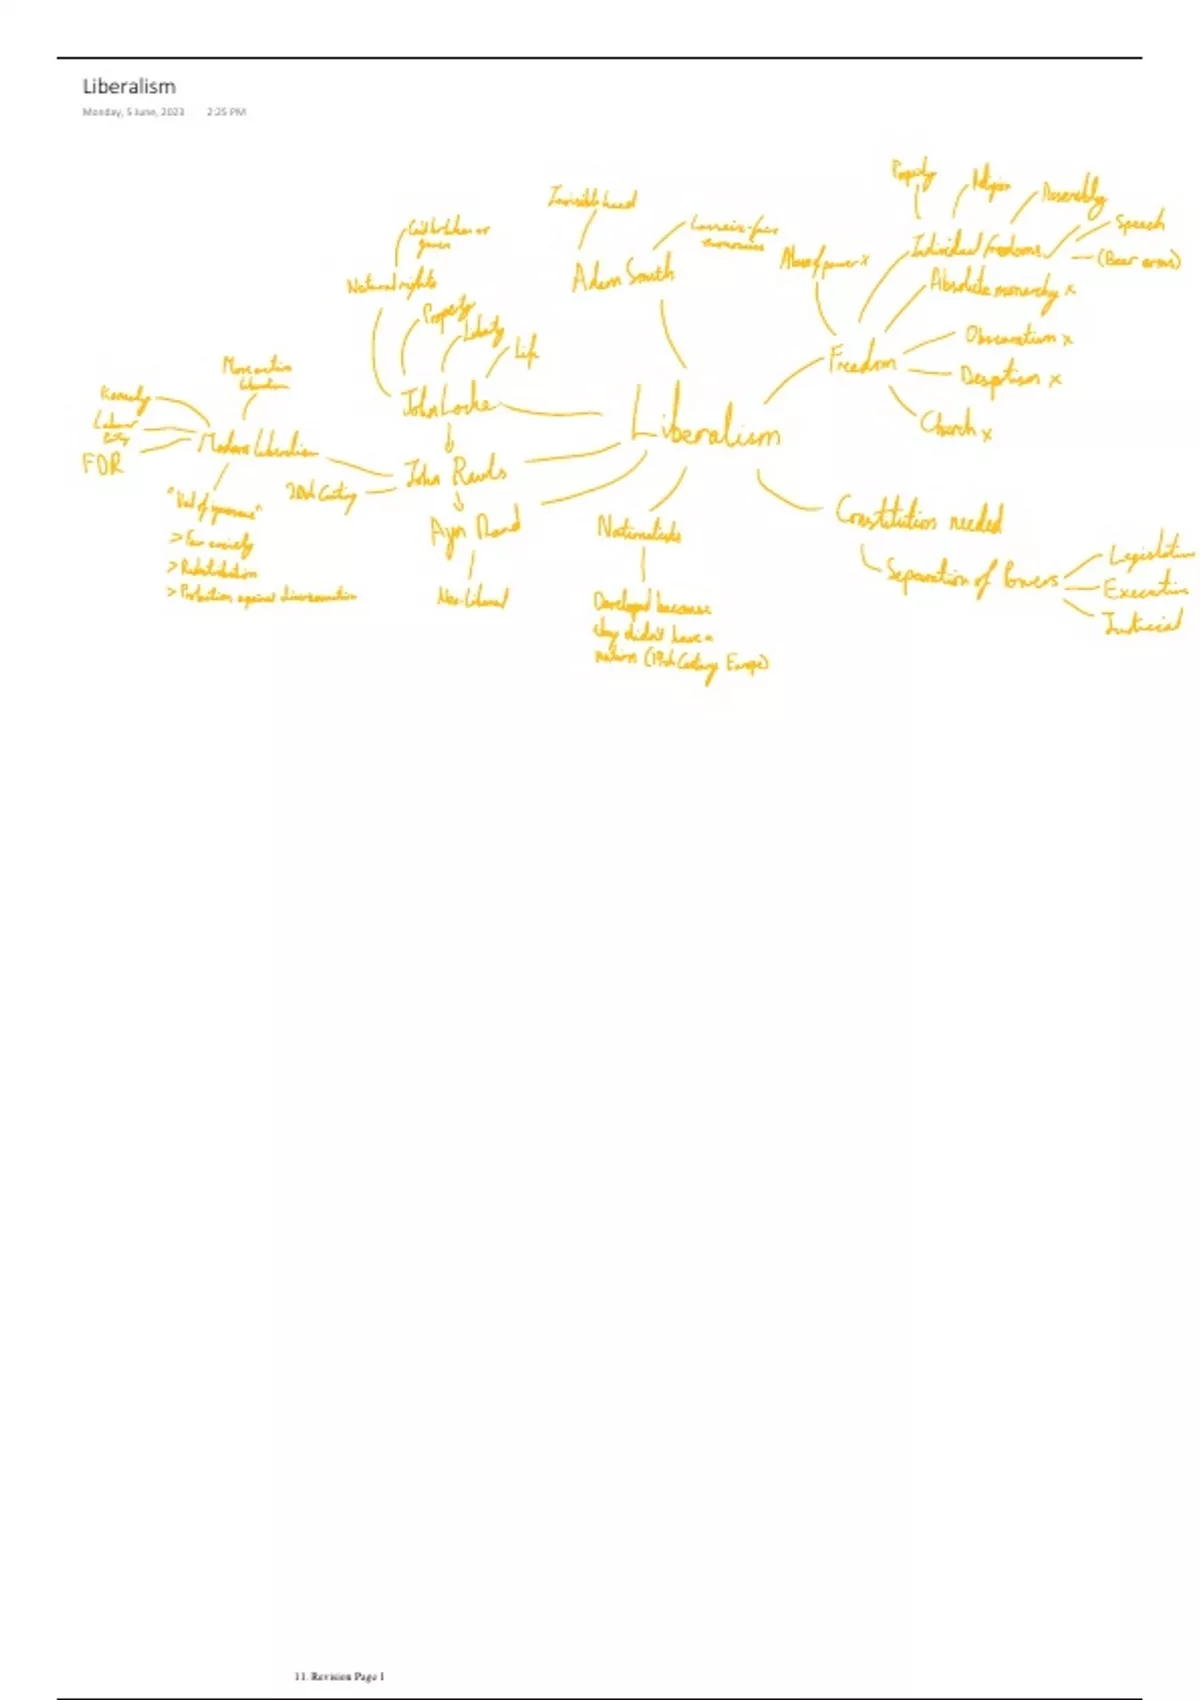 Liberalism
Monday, 5 June, 2023 2:25 PM
Property
Religion
Assembly
Speech
(Bear arms)
Individual freedoms
Invisible hand
Laissez-faire
economies
Adam Smith
Abuse of power x
Absolute monarchy x
Can't be taken or
given
Natural rights
Property
Liberty
Life
John Locke
Freedom
Obscurantism x
Despotism x
Church x
Liberalism
More active
liberalism
Kennedy
Labour
Party
FDR
Modern Liberalism
John Rawls
20th Century
"Veil of ignorance"
> Fair society
> Redistribution
> Protection against discrimination
Ayn Rand
Neo-Liberal
Nationalists
Developed because
they didn't have a
nation (19th Century Europe)
Constitution needed
Separation of Powers
Legislative
Executive
Judicial
11. Revision Page 1